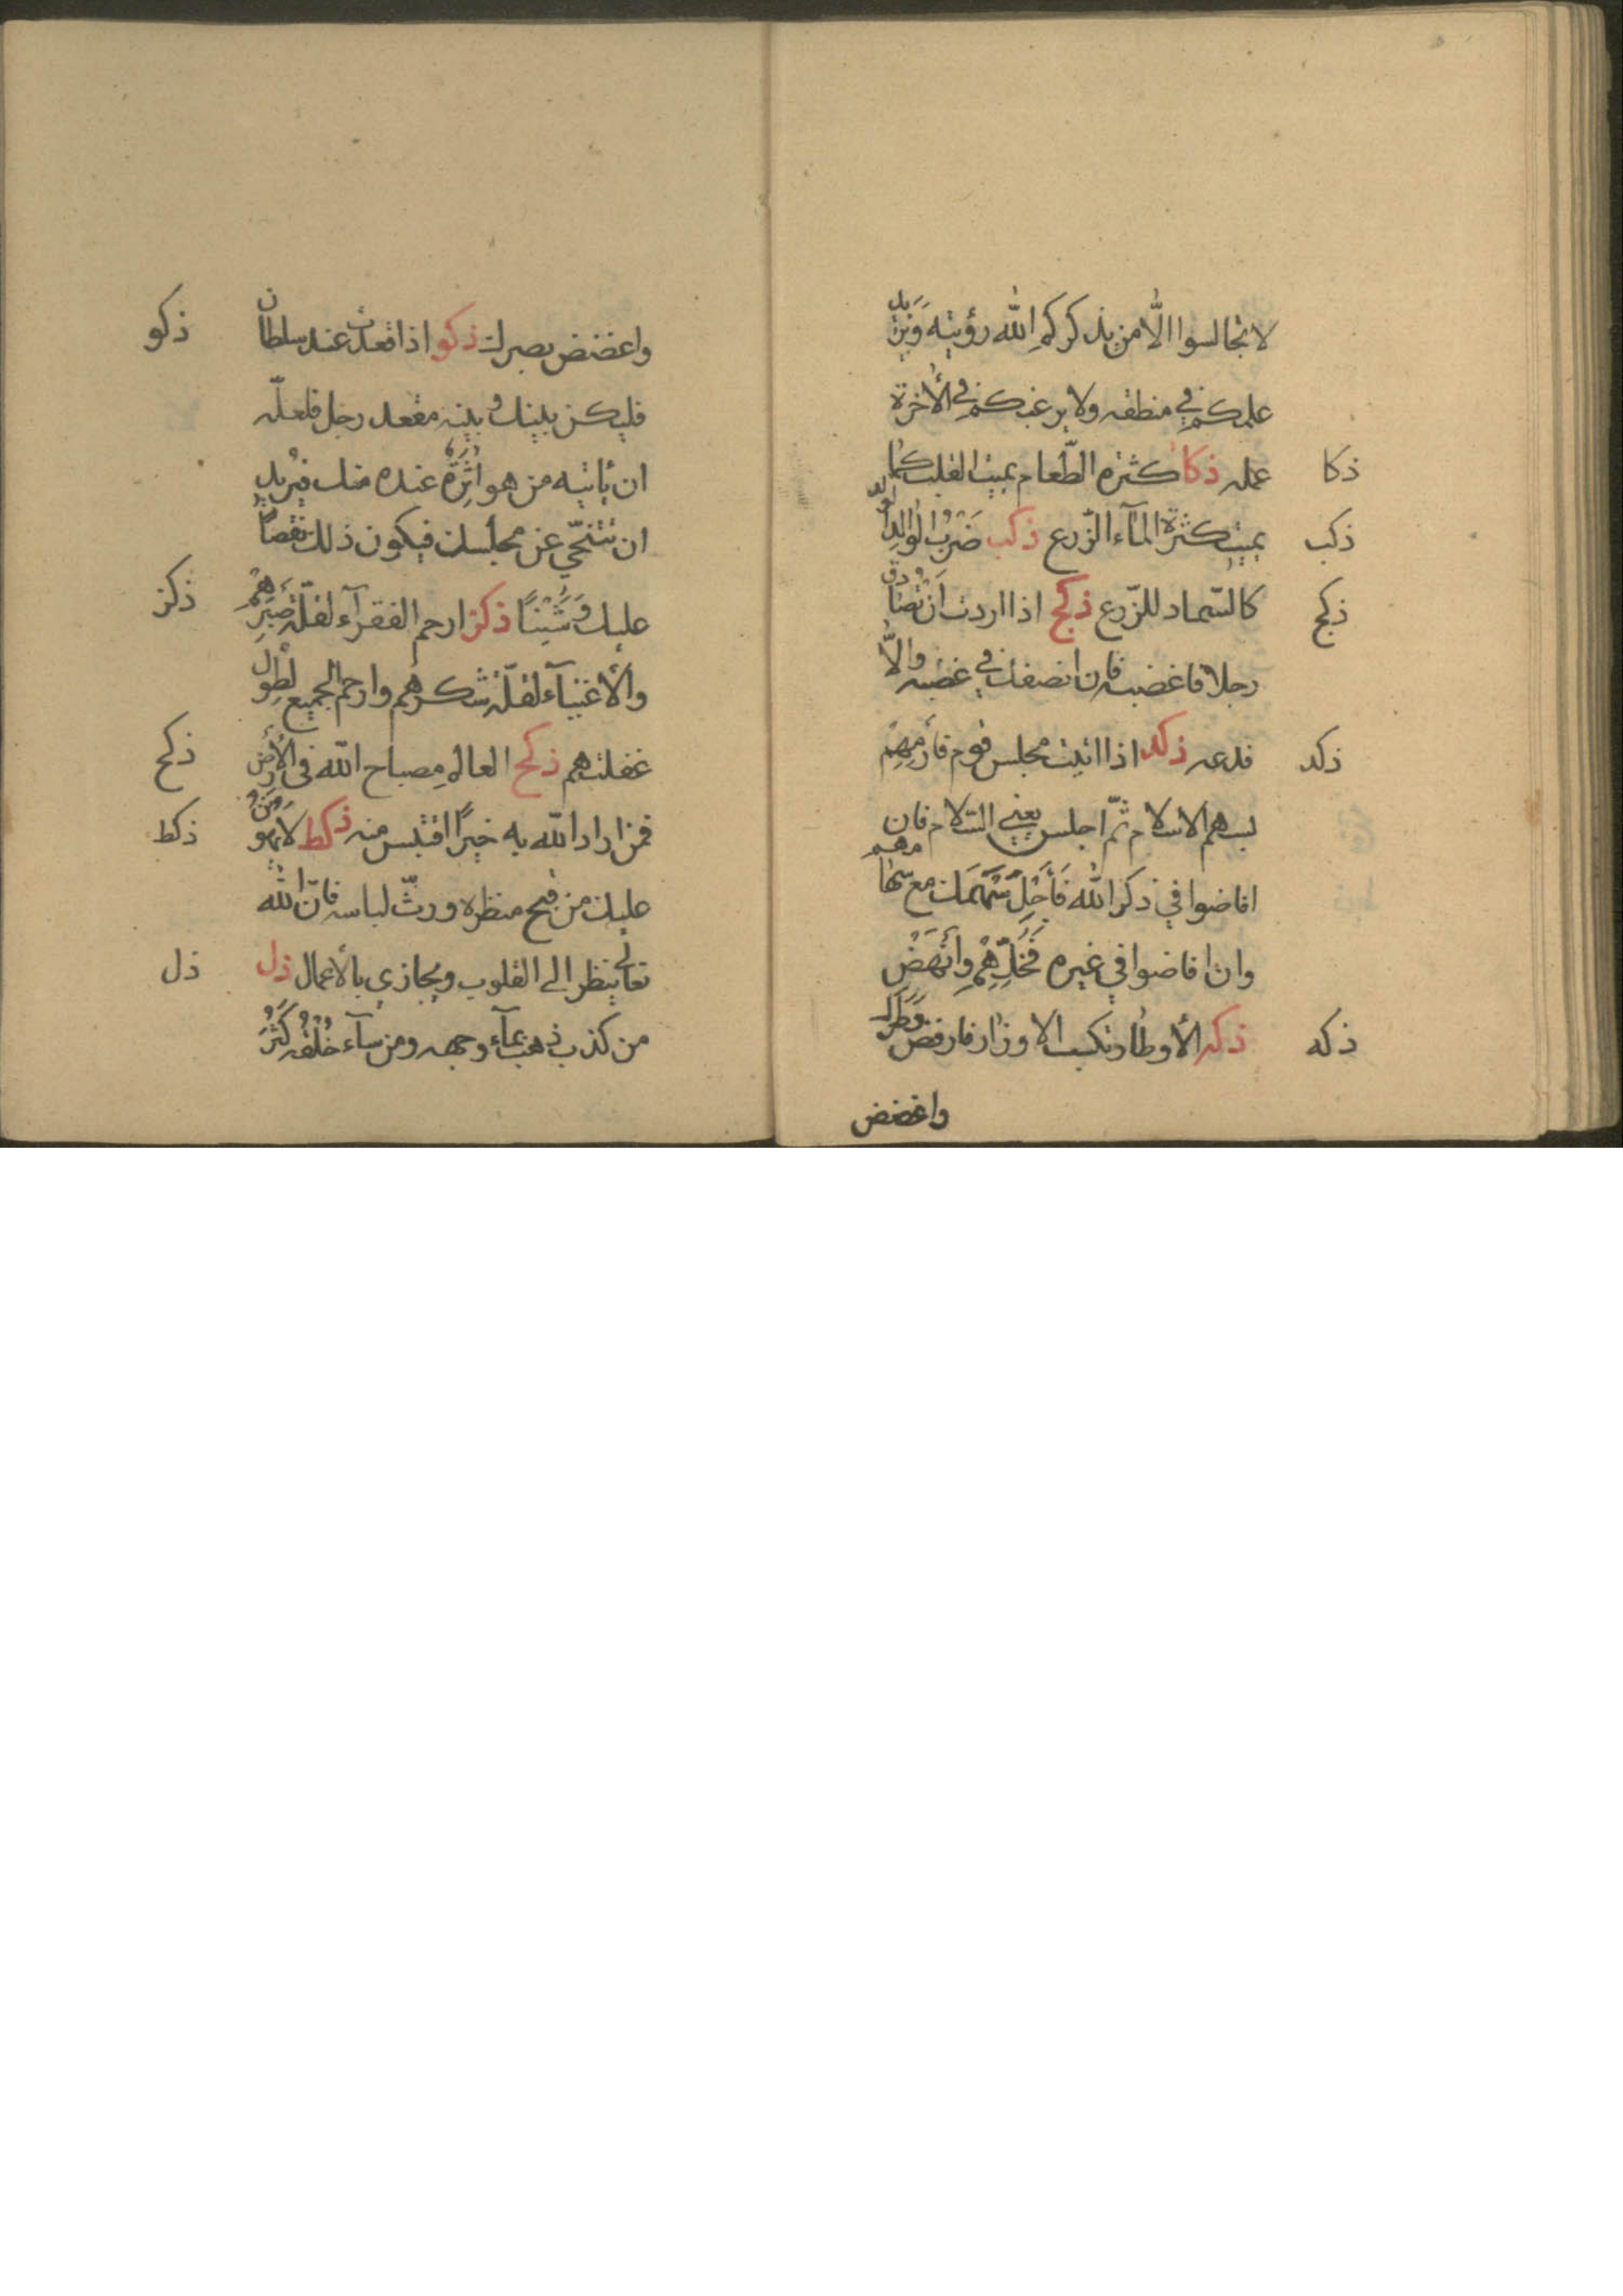 لا تجالسوا الّا من يذكركم الله رؤيته ويزيد
علمكم في منطقه ولا يرغبكم في الأخرة
ذكا
عمله ذكا كثرة الطّعام يميت القلب كما
ذكب
يميت كثرة المآء الزّرع ذكب ضَرْبُ الوالِدِ الولد
ذكج
كالسّماد للزّرع ذكج اذا اردت اَنْ تُصادق
رجلا فاغضبه فان انصفك في غضبه والّا
ذكد
فدعه ذكد اذا اتيت مجلس قوم فأرمِهِم
بسهم الاسلام ثمّ اجلس يعني السّلام فان
افاضوا في ذكر الله فَأَجِلْ سَهْمَك مع سهامهم
وان افاضوا في غيره فَخَلِّهِمْ وانْهَضْ
ذكه
ذكه الأوطار تكسب الاوزار فارفض وَطَرَك
واغضض
ذكو
واغضض بصرك ذكو اذا قعدت عند سلطان
فليكن بينك وبينه مقعد رجل فلعلّه
ان يأتيه من هو اٰثَرُ عنده منك فيريد
ان تتنحّي عن مجلسك فيكون ذلك نقصاً
ذكز
عليك وَشَيْناً ذكز ارحم الفقرآء لقلّة صَبْرِهِمْ
والأغنيآء لقلّة شكرهم وارحم الجميع لطول
ذكح
غفلتهم ذكح العالم مصباح الله في الأرض
ذكط
فمن اراد الله به خيرًا اقتبس منه ذكط لا يهونن
عليك من قبح منظره ورثّ لباسه فانّ الله
ذل
تعالي ينظر الي القلوب ويجازي بالأعمال ذل
من كذب ذهب بمآء وجهه ومن سآء خُلْقُه كَثُرَ